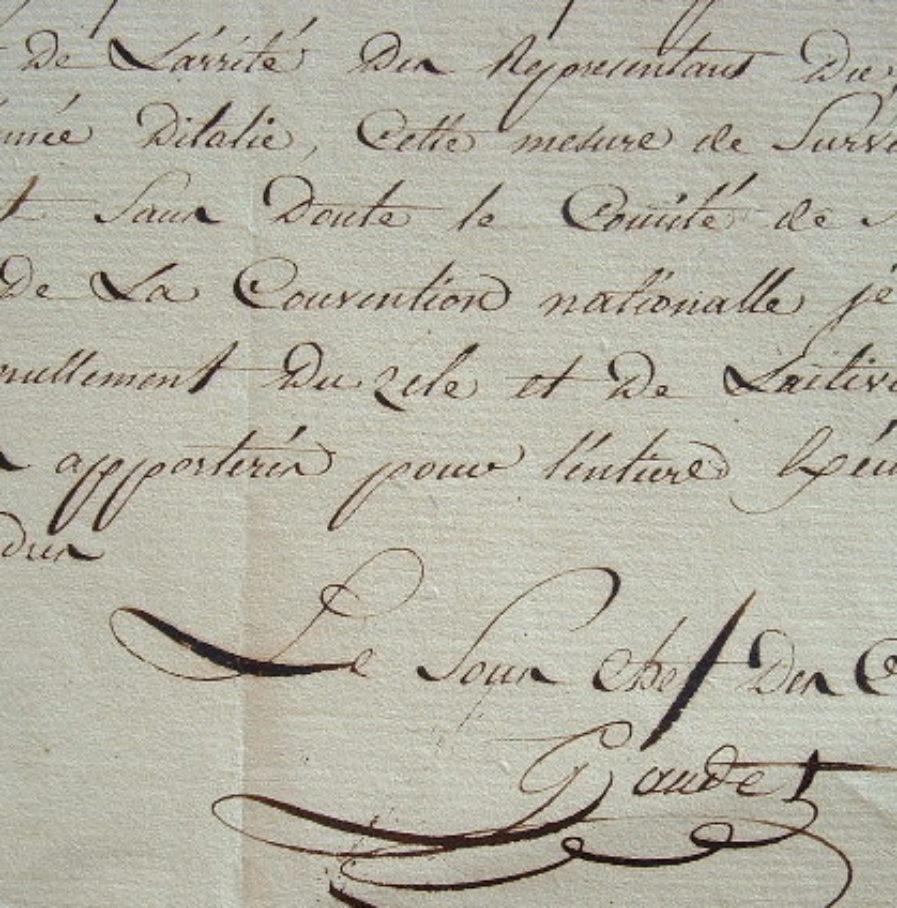 De L'arrité Des Représentans Du
mée Ditalie, Cette mesure de Surve
t Sans Doute le Comité de
De La Convention nationalle jé
nullement Du zele et de Lactiv
apporterés pour l'entiere Exéu
dres
Le Sous chef Des C
Gaudet